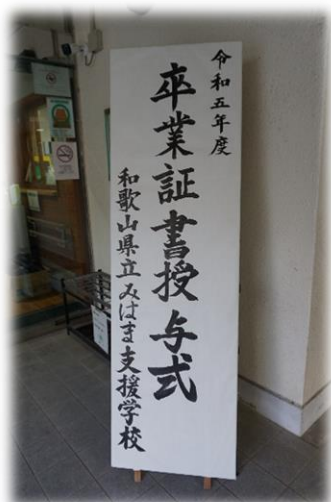 令和五年度
卒業証書授与式
和歌山県立みはま支援学校